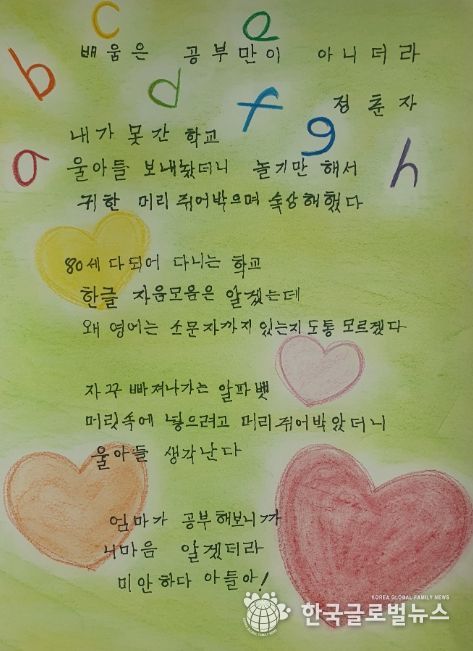 c e
배움은 공부만이 아니더라
b d f g
정춘자
내가 못간 학교
a h
울아들 보내놨더니 놀기만 해서
귀한 머리 쥐어박으며 속상해했다
80세 다되어 다니는 학교
한글 자음모음은 알겠는데
왜 영어는 소문자까지 있는지 도통 모르겠다
자꾸 빠져나가는 알파벳
머릿속에 넣으려고 머리 쥐어박았더니
울아들 생각난다
엄마가 공부해보니까
니마음 알겠더라
미안하다 아들아!
KOREA GLOBAL FAMILY NEWS
한국글로벌뉴스